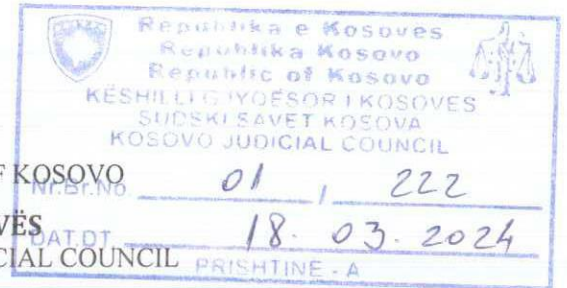 Republika e Kosovës
Republika Kosovo
Republic of Kosovo
KËSHILLI GJYQËSOR I KOSOVËS
SUDSKI SAVET KOSOVA
KOSOVO JUDICIAL COUNCIL
F KOSOVO
Nr.Br.No. 01 / 222
VËS
DAT.DT. 18. 03. 2024
CIAL COUNCIL
PRISHTINE - A